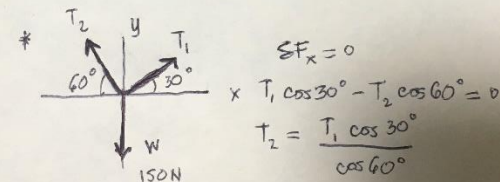 *
T₂
y
T₁
60°
30°
x
W
150N
ΣFₓ = 0
T₁ cos30° - T₂ cos60° = 0
T₂ = T₁ cos30° / cos60°